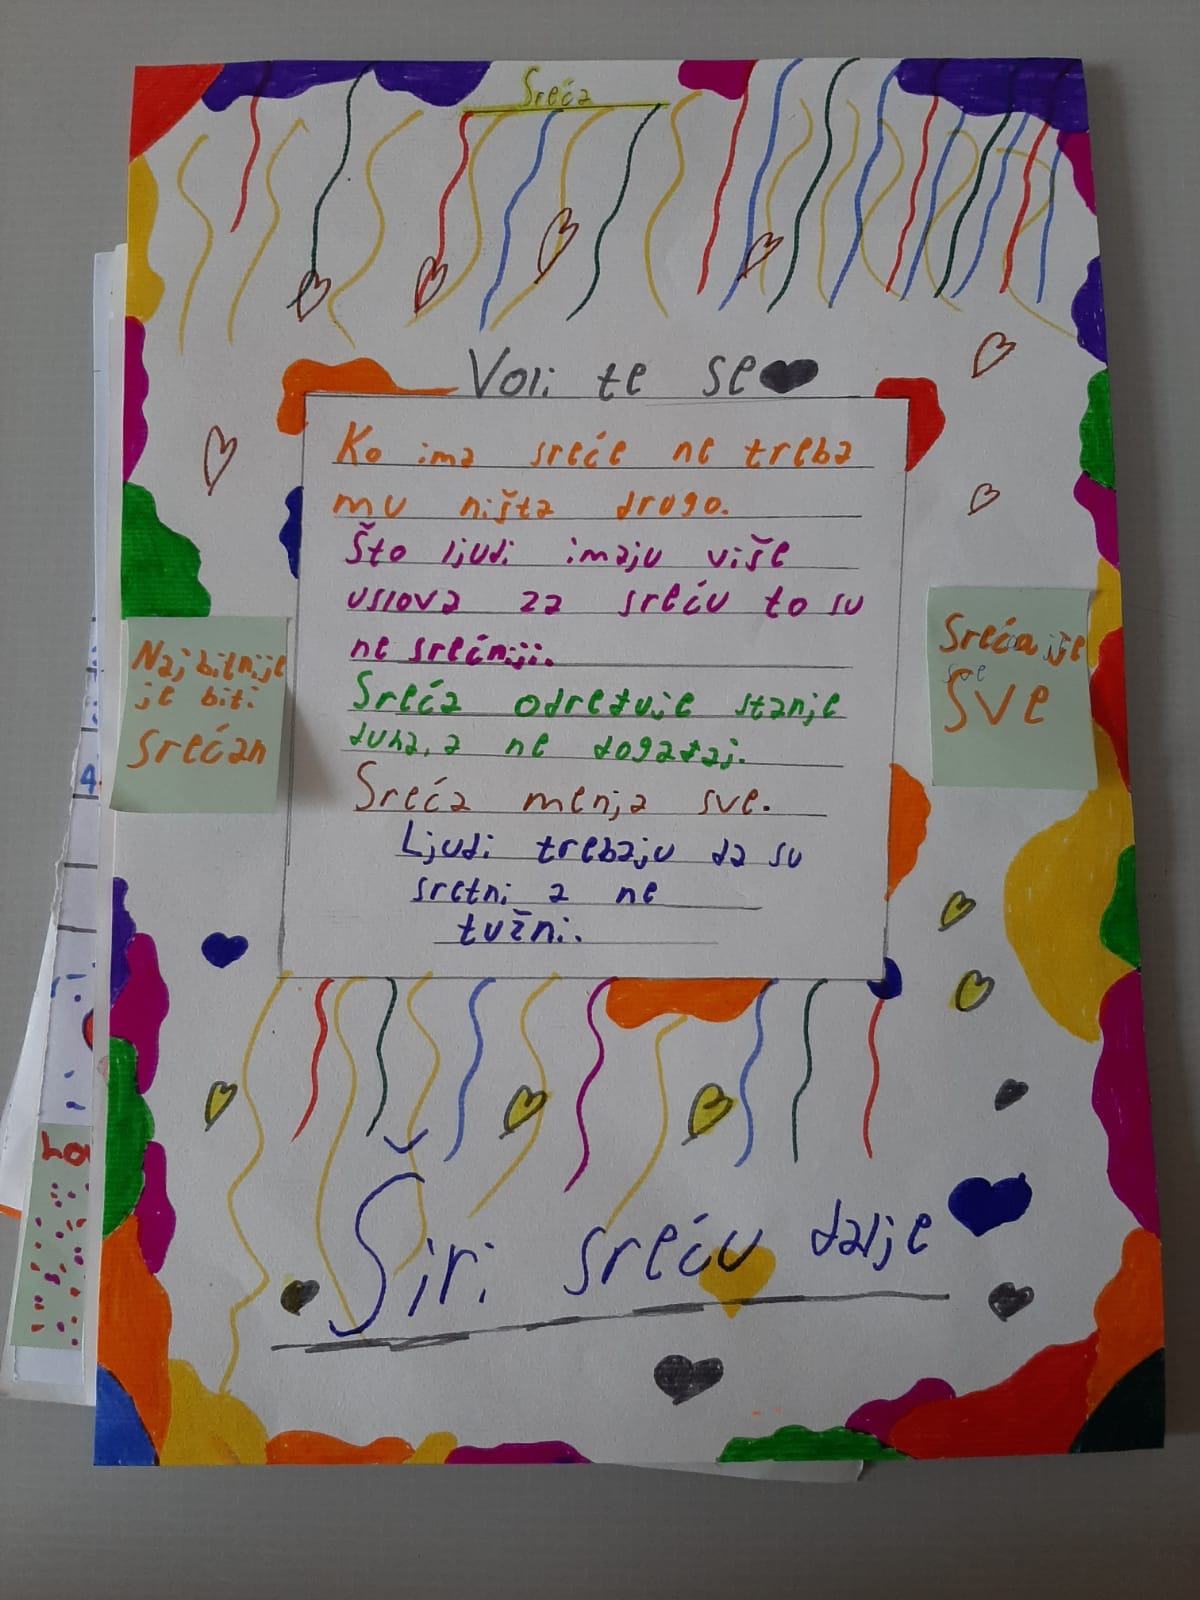 Sreća
Voli te se
Ko ima sreće ne treba
mu ništa drugo.
Što ljudi imaju više
uslova za sreću to su
ne srećniji.
Sreća određuje stanje
duha, a ne događaj.
Sreća menja sve.
Ljudi trebaju da su
sretni a ne
tužni.
Najbitnije
je biti
srećan
Sreća je
sve
sve
Širi sreću dalje
4